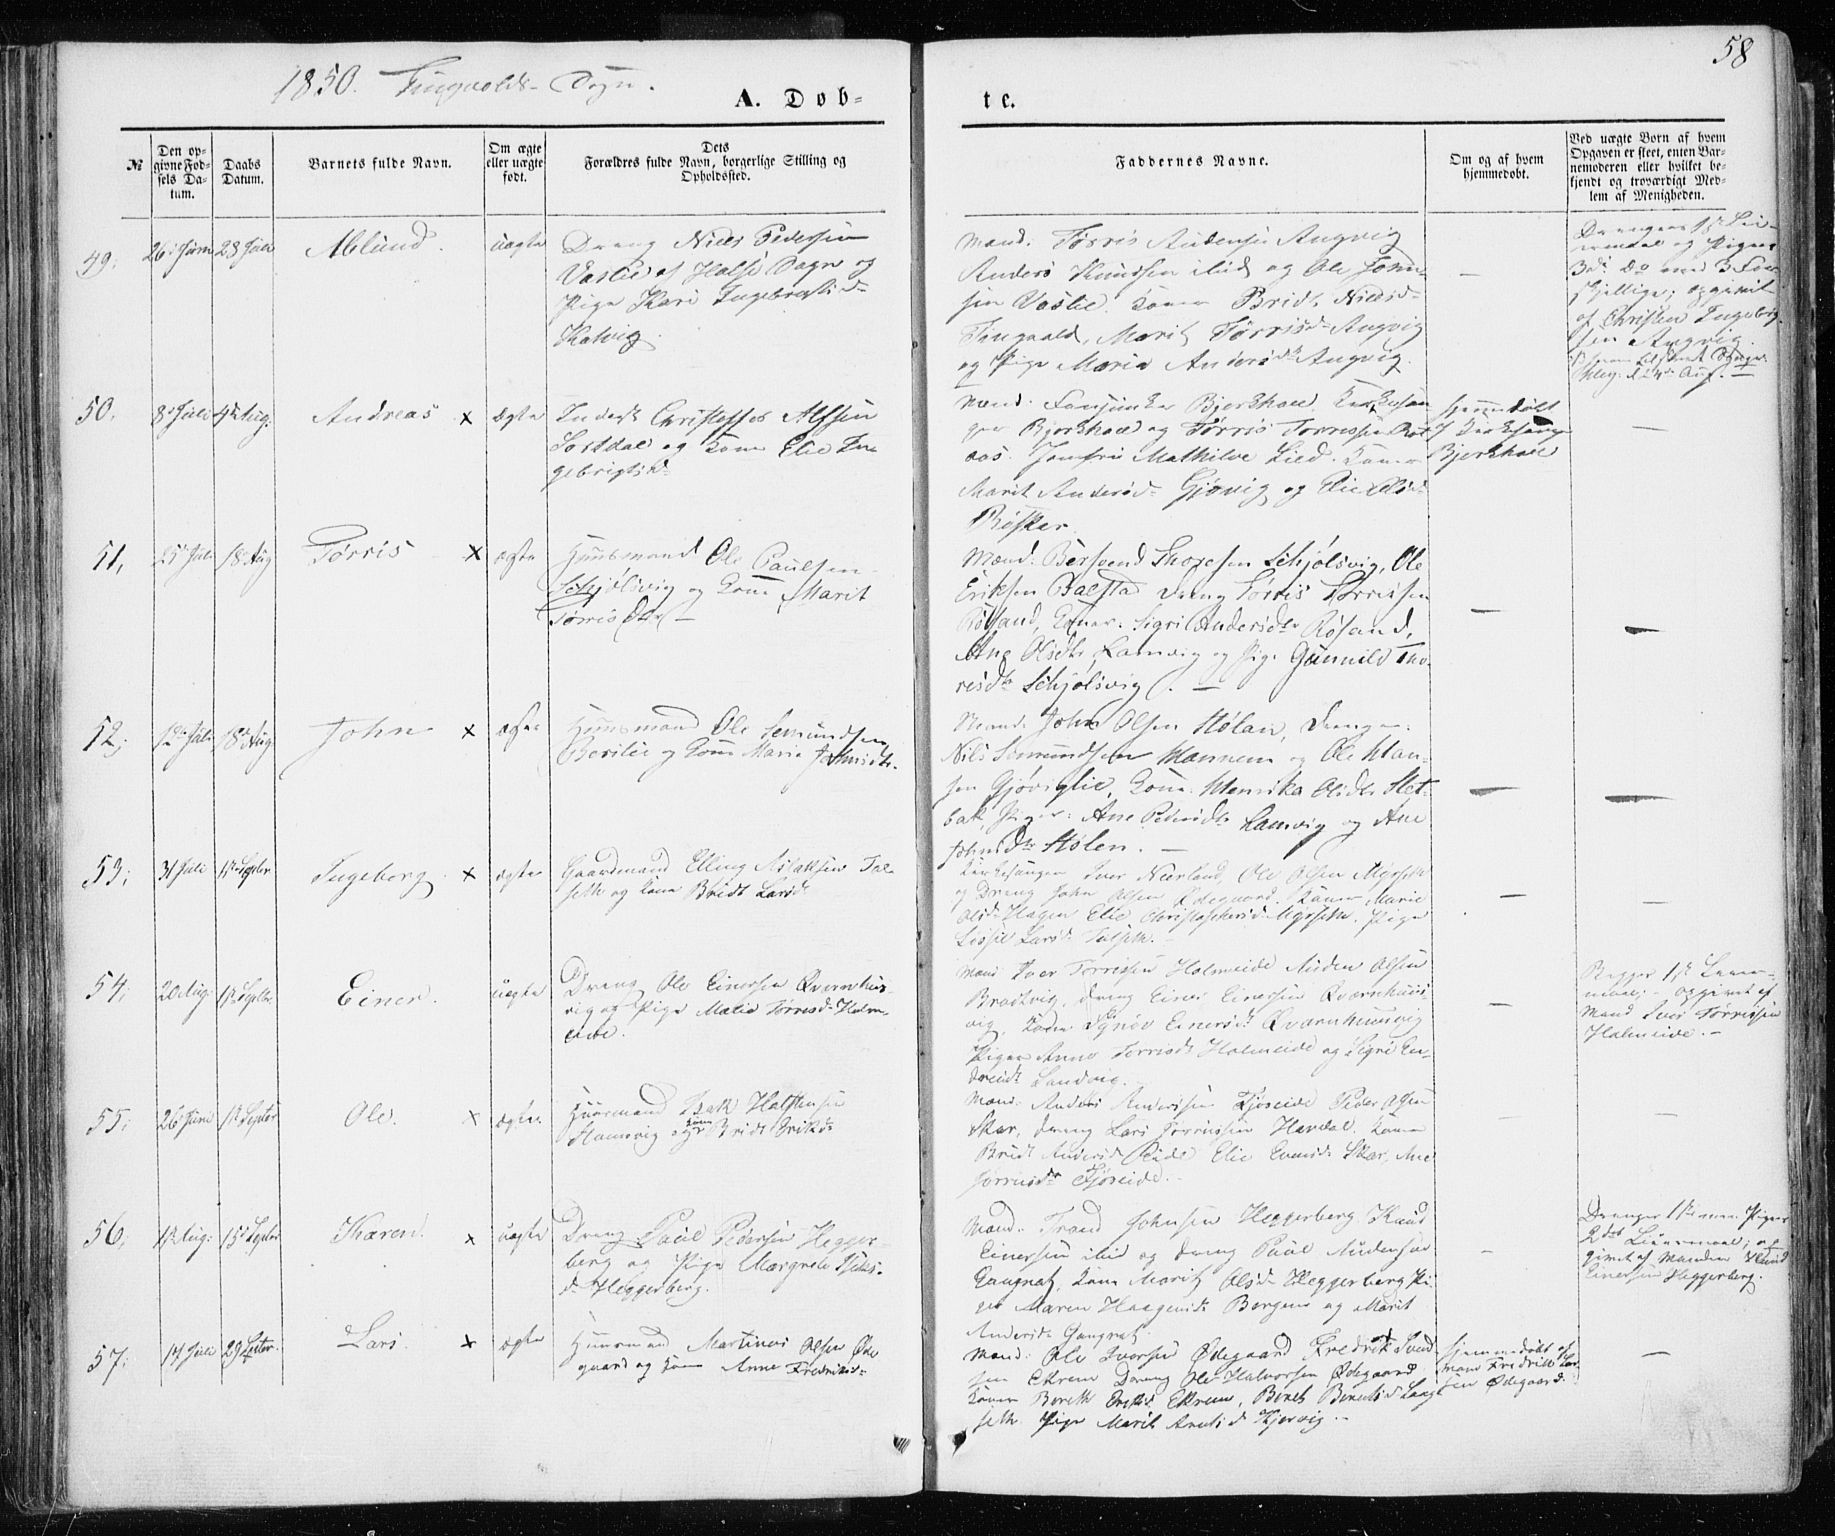 58
1850. Tingvolds Sogn.
A. Døb- te.
No
Den op-
givne Fød-
sels Da-
tum.
Daabs
Datum.
Barnets fulde Navn.
Om ægte
eller uægte
født.
Dets
Forældres fulde Navn, borgerlige Stilling og
Opholdssted.
Faddernes Navne.
Om og af hvem
hjemmedøbt.
Ved uægte Børn af hvem
Opgaven er skeet, enten Bar-
nemoderen eller hvilket be-
kjendt og troværdigt Med-
lem af Menigheden.
49; 26 Juni 28 Juli Amund. uægte
Dreng Niels Pedersen
Vaslie af Halse Sogn og
Pige Kari Ingebrigtsd.
Kalvig.
Mænd: Tørris Audensen Angvig
Anders Knudsen ibid og Ole John-
sen Vaslie. Koner Bridt Nielsd.
Tingvold, Marit Tørrisd. Angvig
og Pige Maria Andersd. Angvig.
—
Drengens 1ste Lei-
ermaal og Pigens
3die Do med 3 for-
skjellige; opgivet
af Christen Ingebrig-
sen Angvig.
50. 8de Juli 4de Aug: Andreas x Ægte
Inderst Christoffer Alfsen
Sørdal og Kone Elie In-
gebrigtsd.
Bjerkhoel
Bjerkhoel og Tørris Torressen
Jomfru Mathilde Lied. Koner
Marit Andersd. Gjørvig og Elie Olsd.
Røsker.
Hjemmedøbt
af Kirkesanger
Bjerkhoel
—
51, 25 Juli 18 Aug Tørris x ægte
Huusmand Ole Paulsen
Schjølsvig og Kone Marit
Tørris Dtr —
Mænd: Bersvend Thoresen Schjølsvig, Ole
Eriksen Balstad Dreng Tørris Tørrissen
Røsand, Koner: Sigri Andersdtr Røsand,
Ane Olsdtr Lamvig og Pige Gunnild Tho-
resdtr Schjølsvig. —
—
—
52; 12 Juli 18 Aug John x ægte
Huusmand Ole Semundsen
Berilie og Kone Marie Johnsdtr.
Mænd: John Olsen Stølan, Drenge:
Nils Semundsen Mannem og Ole Han-
sen Gjøviglie, Kone: Henrika Olsdtr Slet-
bak Piger: Ane Pedersdtr Lamvig og Ane
Johnsdtr Stølen. —
—
—
53; 31 Juli 1ste Septbr Ingeborg x ægte
Gaardmand Elling Aslaksen Tal-
seth og Kone Bridt Larsd.
Kirkesanger Iver Neerland, Ole Olsen Myrseth
og Dreng John Olsen Ødegaard. Koner Marie
Olsd. Hagen Elie Christophersd. Myrseth. Pige
Lissil Larsd. Talseth. —
—
—
54; 20 Aug: 1ste Septbr Einer. uægte
Dreng Ole Einersen Qvernhus-
vig og Pige Malie Tørresd. Holm-
eide.
Mænd Iver Tørrissen Holmeide Auden Olsen
Bradtvig, Dreng Einer Einersen Qvernhuus-
vig, Kone Synøv Einersdt Qvernhuusvig
Piger Anne Torrisdt Holmeide og Sigri En-
dresdt Sandvig.
—
Begges 1ste Leier-
maal; — opgivet af
Mand Iver Tørrissen
Holmeide. —
55; 26 Juni 1ste Septbr Ole. x ægte.
Huusmand Isak Halstensen
Hamvig og Kone Bridt Eriksd.
Mænd: Anders Andersen Fjøseide Peder Olsen
Skar, Dreng Lars Jørrissen Hovdal. Koner
Bridt Andersd. Elie Evensd. Skar, Ane
Jørrisdtr Fjøseide. —
—
—
56; 1ste Aug: 15de Septbr Karen. x uægte
Dreng Paul Pedersen Hegger-
berg og Pige Margrete
Heggerberg.
Mænd: Trond Johnsen Heggerberg Knud
Einersen ibid og Dreng Paul Audensen
Gangnat, Kone Marit Olsd. Heggerberg Pi-
ger Maren Haagensd. Bergem og Marit
Andersd. Gangnat.
—
Drengens 1ste men Pigens
2det Leiermaal; op-
givet af Manden Knud
Einersen Heggerberg.
57; 14 Juli 29 Septbr. Lars. x ægte
Huusmand Martinus Olsen Øde-
gaard og Kone Anne Fredriksd.
Mænd: Ole Iversen Ødegaard Fredrik Svend-
sen Ekrem Dreng Ole Halvorsen Ødegaard
Koner Bereth Eriksd. Ekrem, Beret Berntsd. Lang-
seth Pige Marit Arntsd. Kjørvig. —
Hjemmedøbt af
Mand Fredrik Lar-
sen Ødegaard.
—